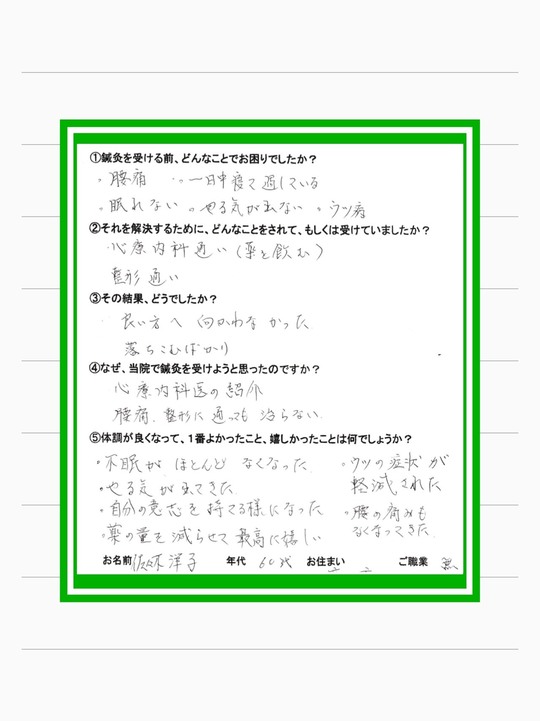 ①鍼灸を受ける前、どんなことでお困りでしたか？
。腰痛 。一日中寝て過している
。眠れない 。やる気が出ない 。ウツ病
②それを解決するために、どんなことをされて、もしくは受けていましたか？
心療内科通い（薬を飲む）
整形通い
③その結果、どうでしたか？
良い方へ向かわなかった
落ちこむばかり
④なぜ、当院で鍼灸を受けようと思ったのですか？
心療内科医の紹介
腰痛、整形に通っても治らない
⑤体調が良くなって、1番よかったこと、嬉しかったことは何でしょうか？
・不眠がほとんどなくなった
・やる気が出てきた
・自分の意志を持てる様になった
・薬の量を減らせて最高に嬉しい
・ウツの症状が
軽減された
・腰の痛みも
なくなってきた
お名前 佐々木洋子 年代 60代 お住まい ご職業 無